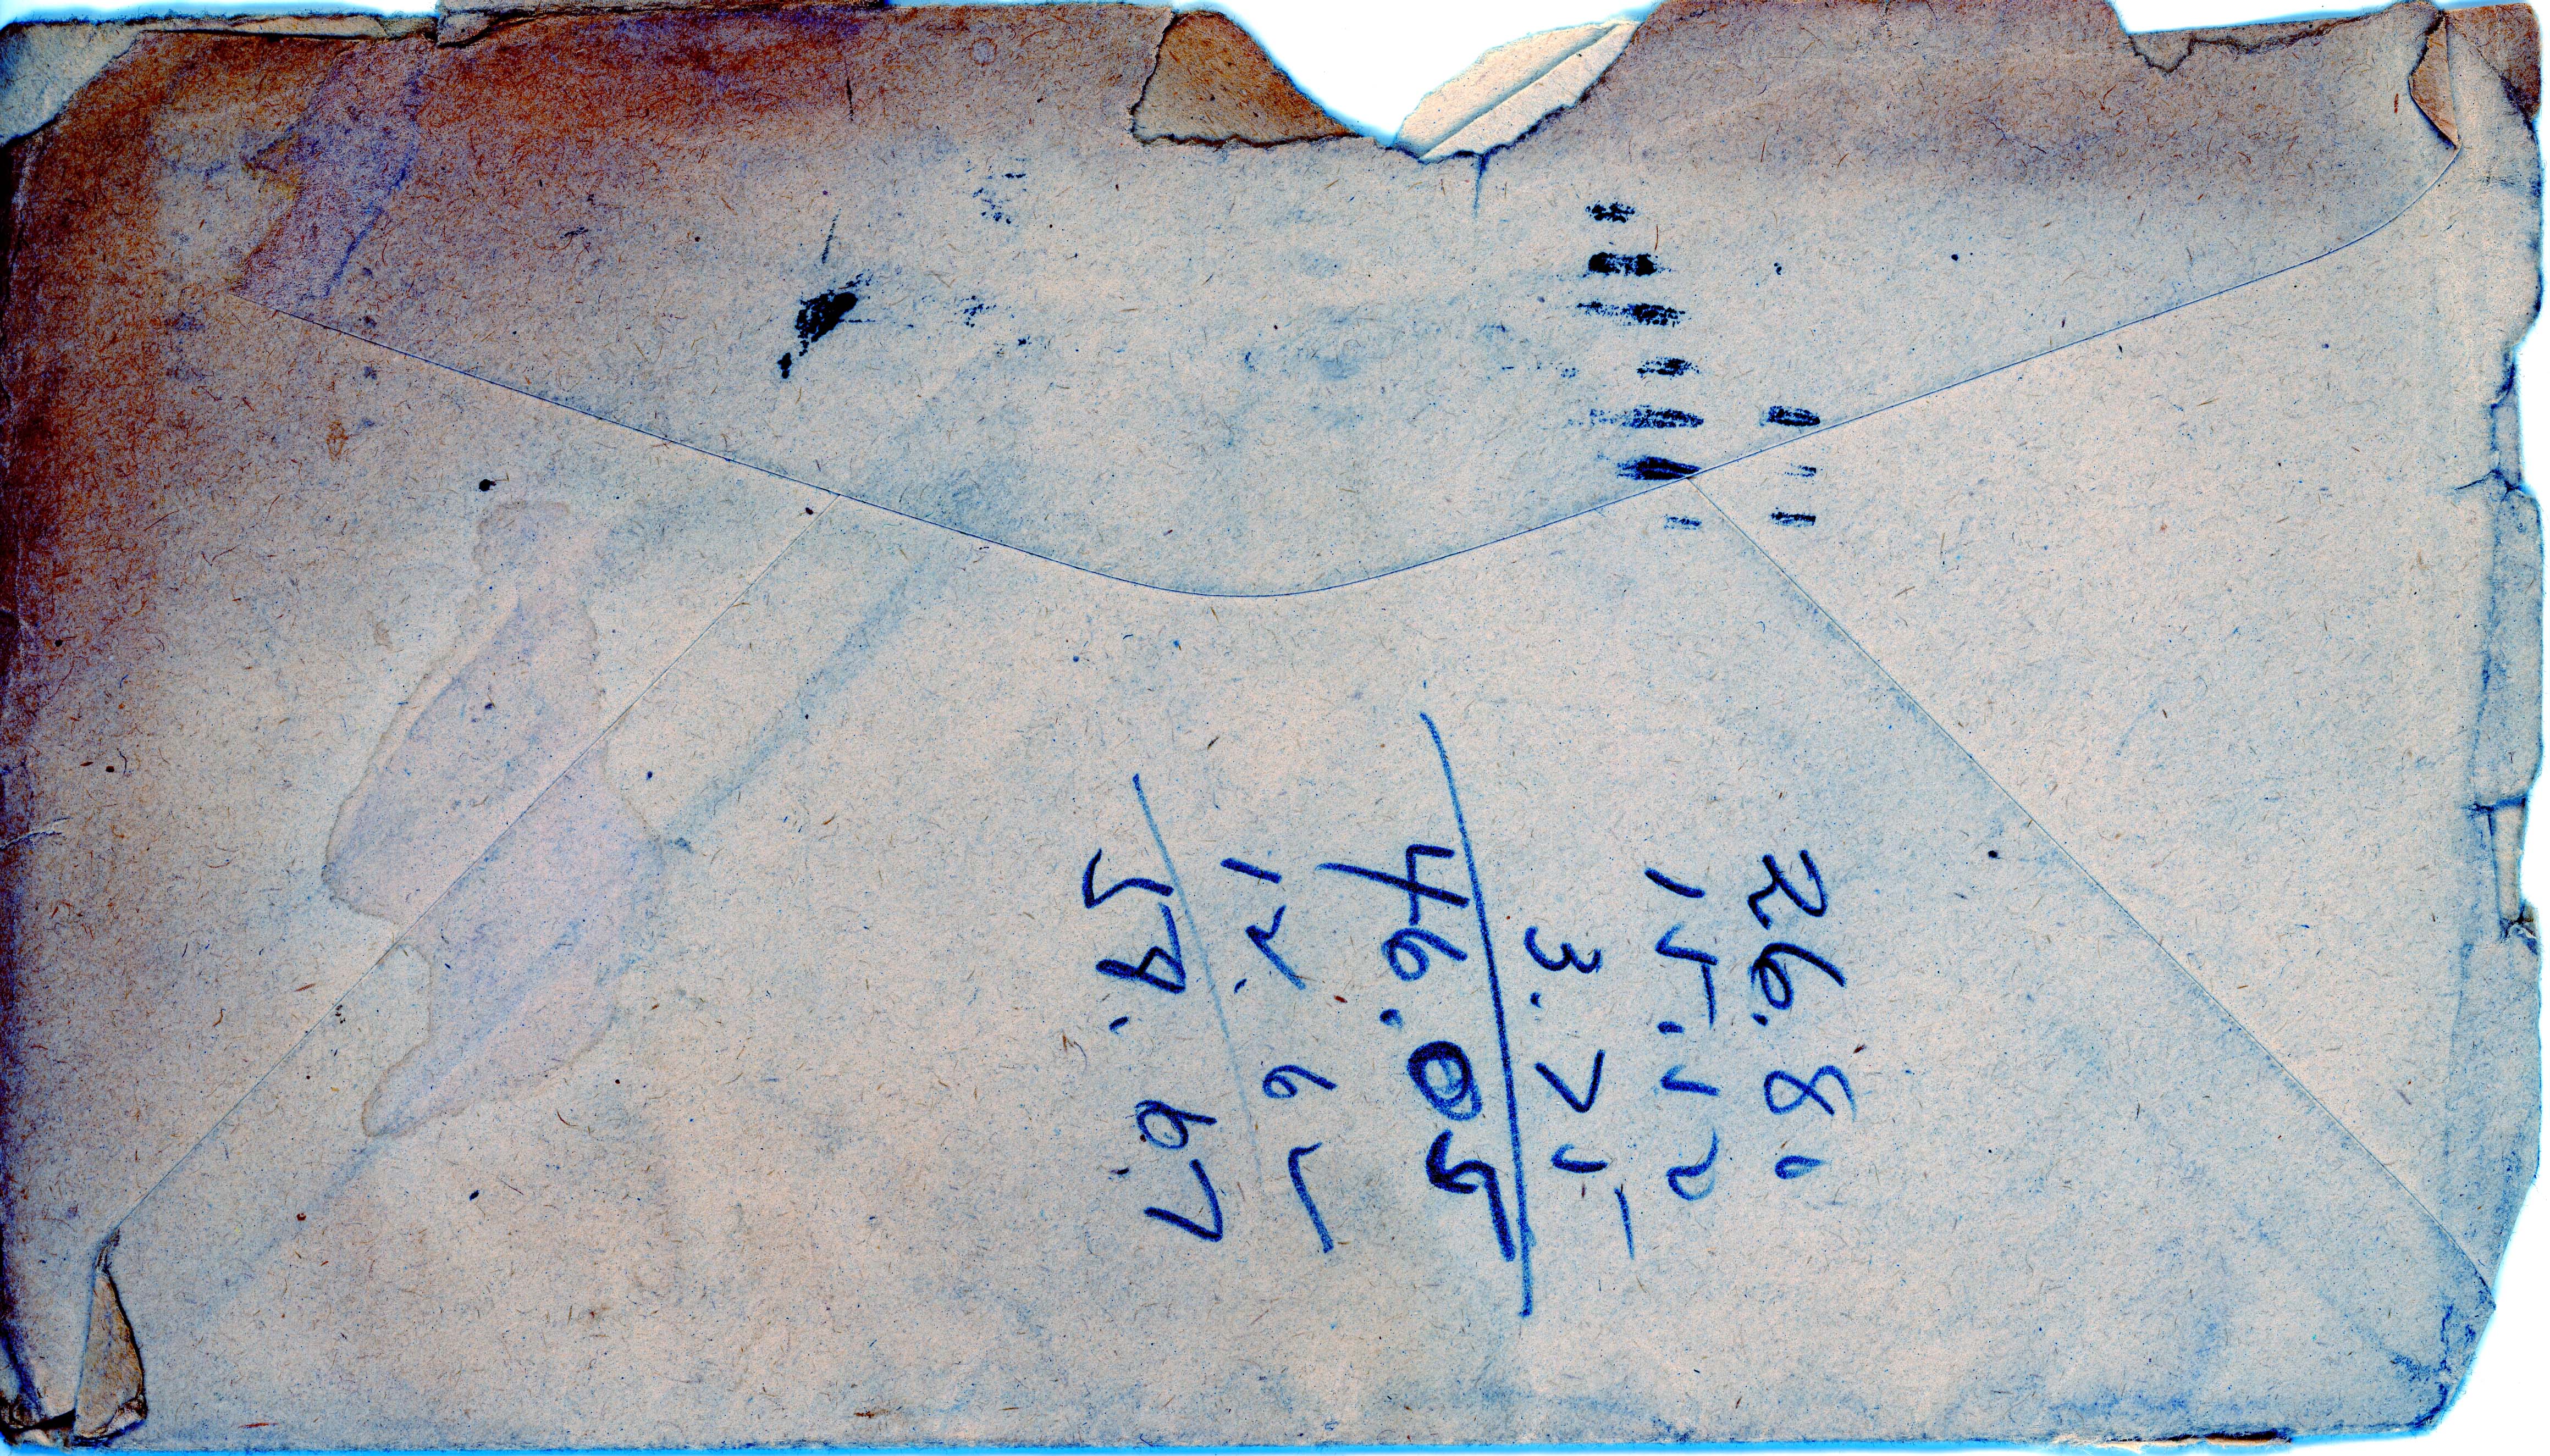 26.80
15.50
3.75
46.05
12.62
58.67